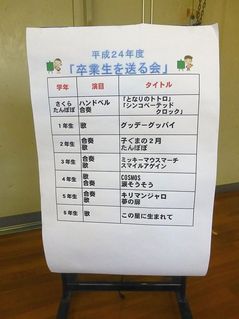 平成24年度
「卒業生を送る会」
学年 演目 タイトル
さくら たんぽぽ ハンドベル 合奏 「となりのトトロ」 「シンコペーテッド クロック」
1年生 歌 グッデーグッバイ
2年生 合奏 歌 子ぐまの2月 たんぽぽ
3年生 合奏 歌 ミッキーマウスマーチ スマイルアゲイン
4年生 歌 合奏 COSMOS 涙そうそう
5年生 合奏 歌 キリマンジャロ 夢の扉
6年生 歌 この星に生まれて